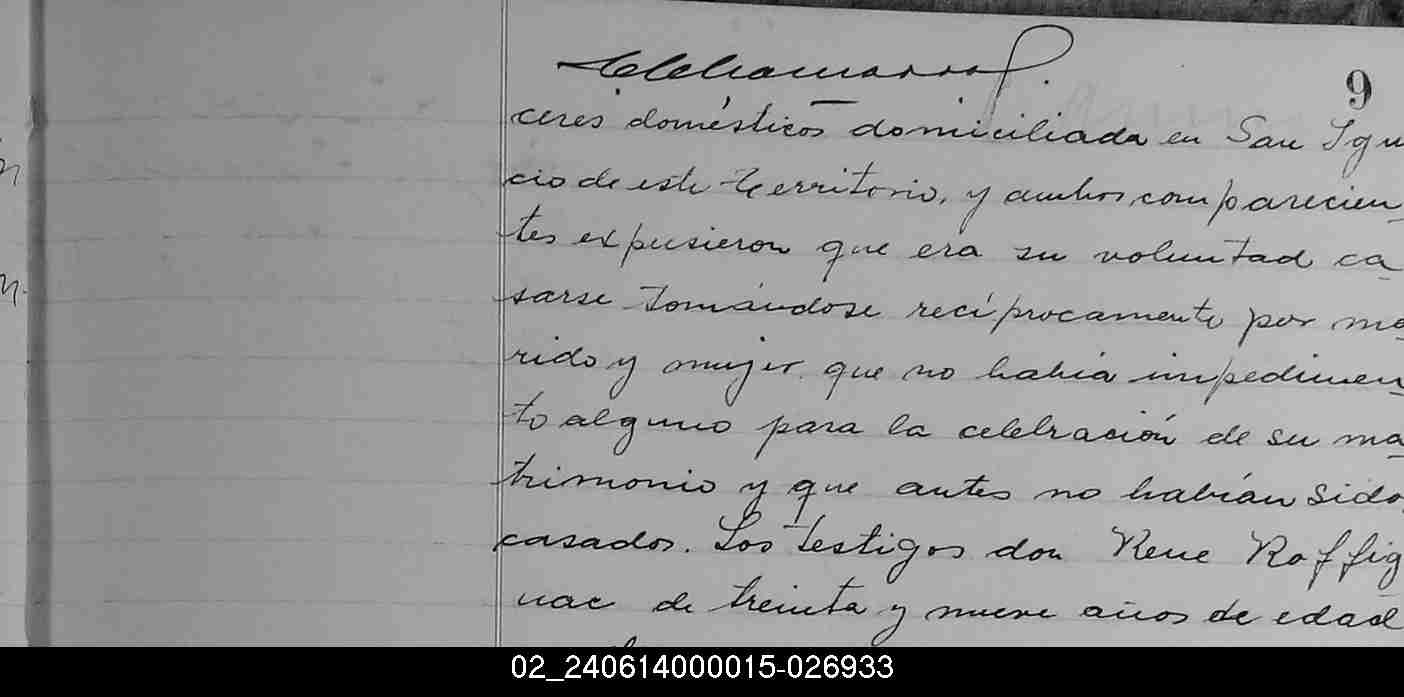 9
ceres domésticos domiciliada en San Igna
cio de este territorio, y ambos comparecien
tes expusieron que era su voluntad ca
sarse tomándose recíprocamente por ma
rido y mujer que no había impedimen
to alguno para la celebración de su ma
trimonio y que antes no habían sido
casados. Los testigos don Rene Roffig
nac de treinta y nueve años de edad
02_240614000015-026933